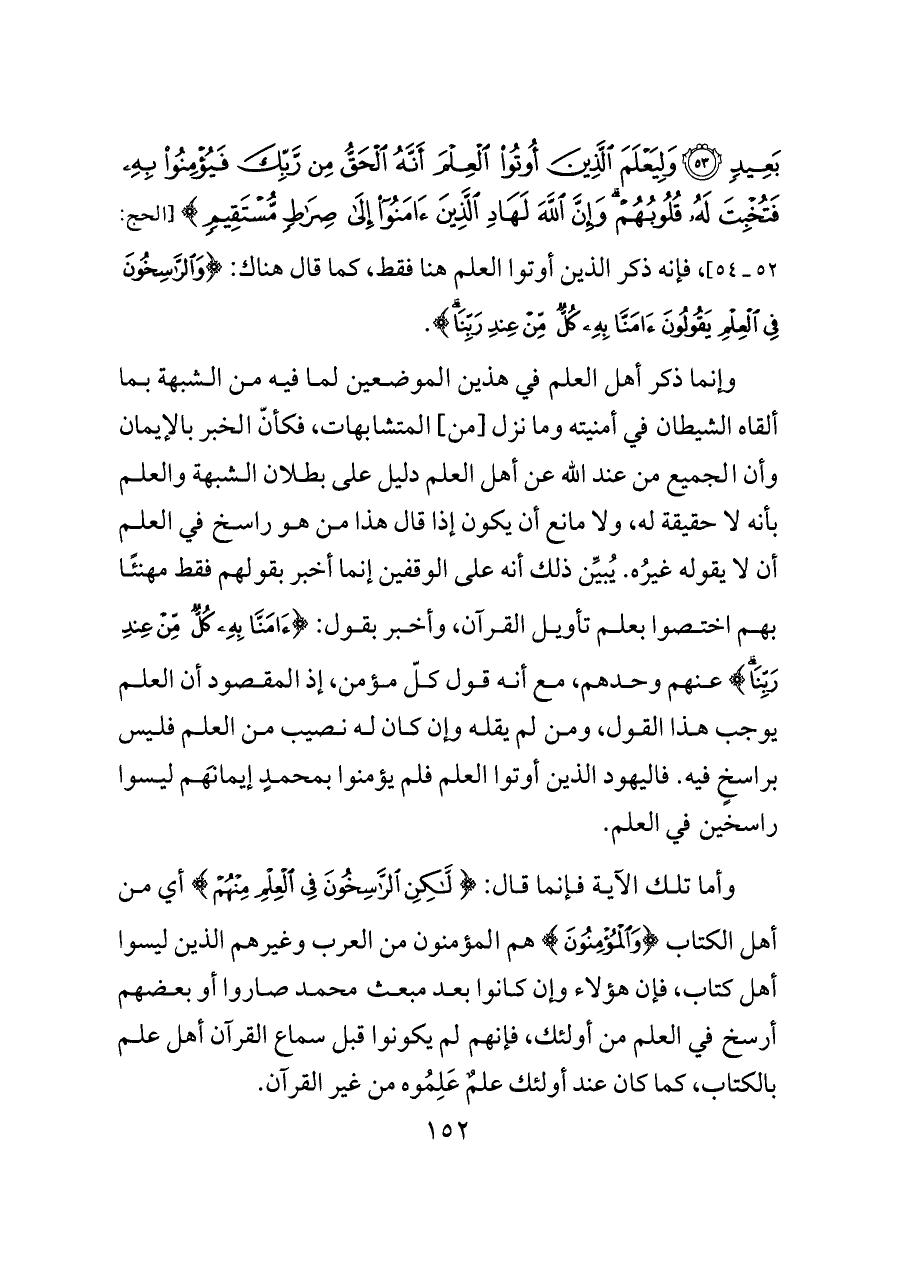 بَعِيدٍ ﴿٥٣﴾ وَلِيَعْلَمَ ٱلَّذِينَ أُوتُوا۟ ٱلْعِلْمَ أَنَّهُ ٱلْحَقُّ مِن رَّبِّكَ فَيُؤْمِنُوا۟ بِهِۦ
فَتُخْبِتَ لَهُۥ قُلُوبُهُمْ ۗ وَإِنَّ ٱللَّهَ لَهَادِ ٱلَّذِينَ ءَامَنُوٓا۟ إِلَىٰ صِرَٰطٍ مُّسْتَقِيمٍ ﴾ [الحج:
٥٢ـ٥٤]، فإنه ذكر الذين أوتوا العلم هنا فقط، كما قال هناك: ﴿وَٱلرَّٰسِخُونَ
فِى ٱلْعِلْمِ يَقُولُونَ ءَامَنَّا بِهِۦ كُلٌّ مِّنْ عِندِ رَبِّنَا ۗ﴾.
وإنما ذكر أهل العلم في هذين الموضعين لما فيه من الشبهة بما
ألقاه الشيطان في أمنيته وما نزل [من] المتشابهات، فكأنّ الخبر بالإيمان
وأن الجميع من عند الله عن أهل العلم دليل على بطلان الشبهة والعلم
بأنه لا حقيقة له، ولا مانع أن يكون إذا قال هذا من هو راسخ في العلم
أن لا يقوله غيرُه. يُبيِّن ذلك أنه على الوقفين إنما أخبر بقولهم فقط مهنئًا
بهم اختصوا بعلم تأويل القرآن، وأخبر بقول: ﴿ءَامَنَّا بِهِۦ كُلٌّ مِّنْ عِندِ
رَبِّنَا ۗ﴾ عنهم وحدهم، مع أنه قول كلّ مؤمن، إذ المقصود أن العلم
يوجب هذا القول، ومن لم يقله وإن كان له نصيب من العلم فليس
براسخٍ فيه. فاليهود الذين أوتوا العلم فلم يؤمنوا بمحمدٍ إيمانَهم ليسوا
راسخين في العلم.
وأما تلك الآية فإنما قال: ﴿ لَّٰكِنِ ٱلرَّٰسِخُونَ فِى ٱلْعِلْمِ مِنْهُمْ ﴾ أي من
أهل الكتاب ﴿وَٱلْمُؤْمِنُونَ ﴾ هم المؤمنون من العرب وغيرهم الذين ليسوا
أهل كتاب، فإن هؤلاء وإن كانوا بعد مبعث محمد صاروا أو بعضهم
أرسخ في العلم من أولئك، فإنهم لم يكونوا قبل سماع القرآن أهل علم
بالكتاب، كما كان عند أولئك علمٌ عَلِمُوه من غير القرآن.
١٥٢